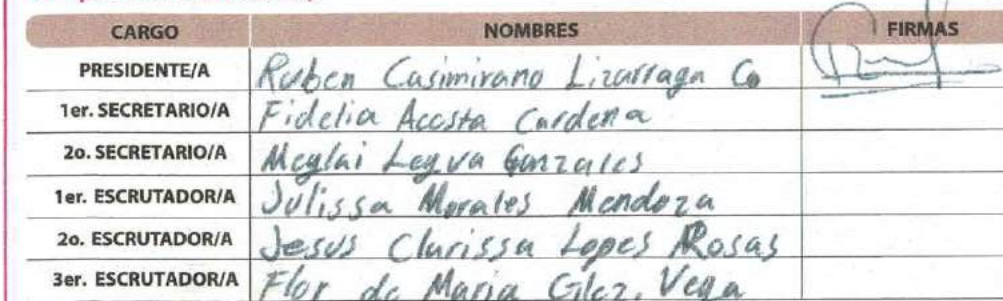 CARGO NOMBRES FIRMAS
PRESIDENTE/A Ruben Casimirano Lizarraga Co
1er. SECRETARIO/A Fidelia Acosta Cardena
2o. SECRETARIO/A Meylai Leyva Gonzales
1er. ESCRUTADOR/A Julissa Morales Mendoza
2o. ESCRUTADOR/A Jesus Clarissa Lopes Rosas
3er. ESCRUTADOR/A Flor de Maria Glez. Vega